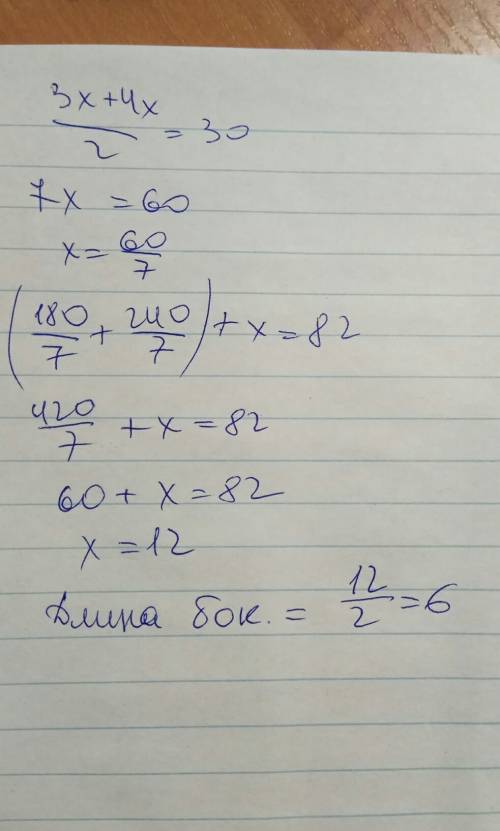 (3x+4x)/2 = 30
7x = 60
x = 60/7
(180/7 + 240/7) + x = 82
420/7 + x = 82
60 + x = 82
x = 12
Длина бок. = 12/2 = 6